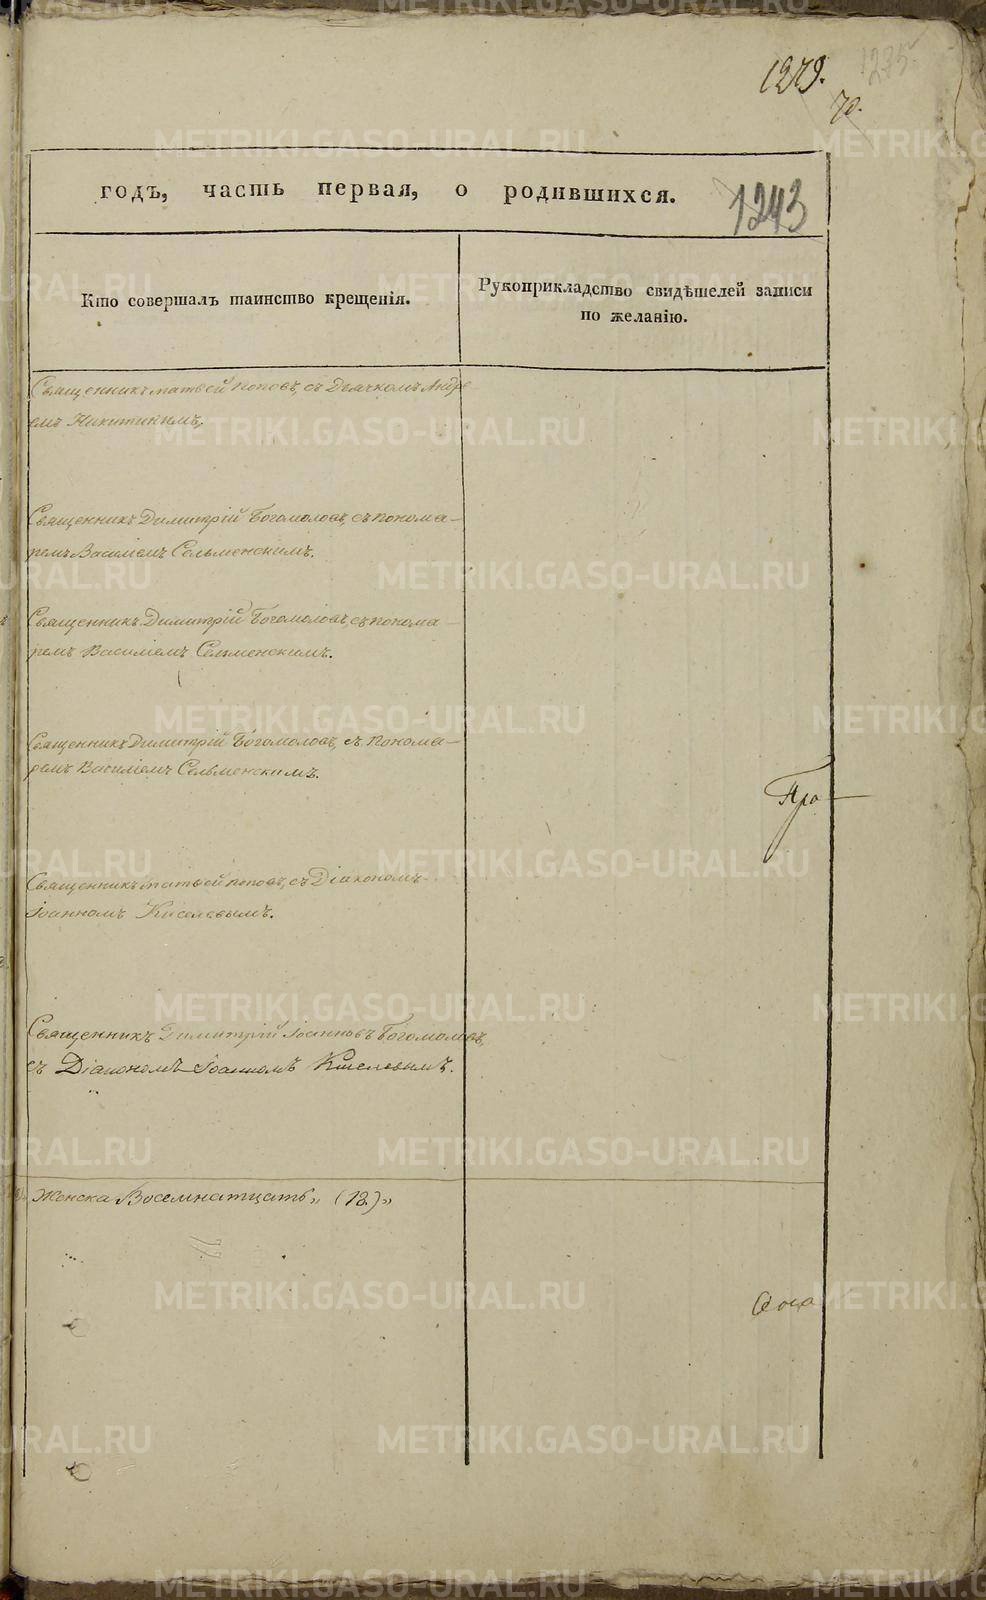 1279.
1235
70.
годъ, часть первая, о родившихся.
1243
Кто совершалъ таинство крещенія.
Рукоприкладство свидѣтелей записи
по желанію.
Священникъ матвей поповъ, съ Дьячкомъ Андре
емъ Никитинымъ,
Священникъ Димитрій Богомоловъ, съ понома–
ремъ Василіемъ Сельменскимъ.
Священникъ Димитрій Богомоловъ, съ понома–
ремъ Василіемъ Сельменскимъ.
Священникъ Димитрій Богомоловъ, съ понома–
ремъ Василіемъ Сельменскимъ.
Священникъ матвей поповъ, съ Діакономъ
Іоанномъ Киселевымъ.
Священникъ Димитрій Іоанновъ Богомоловъ,
съ Діакономъ Іоанномъ Киселевымъ.
Женска Восемнатцать„ (18)„
METRIKI.GASO-URAL.RU